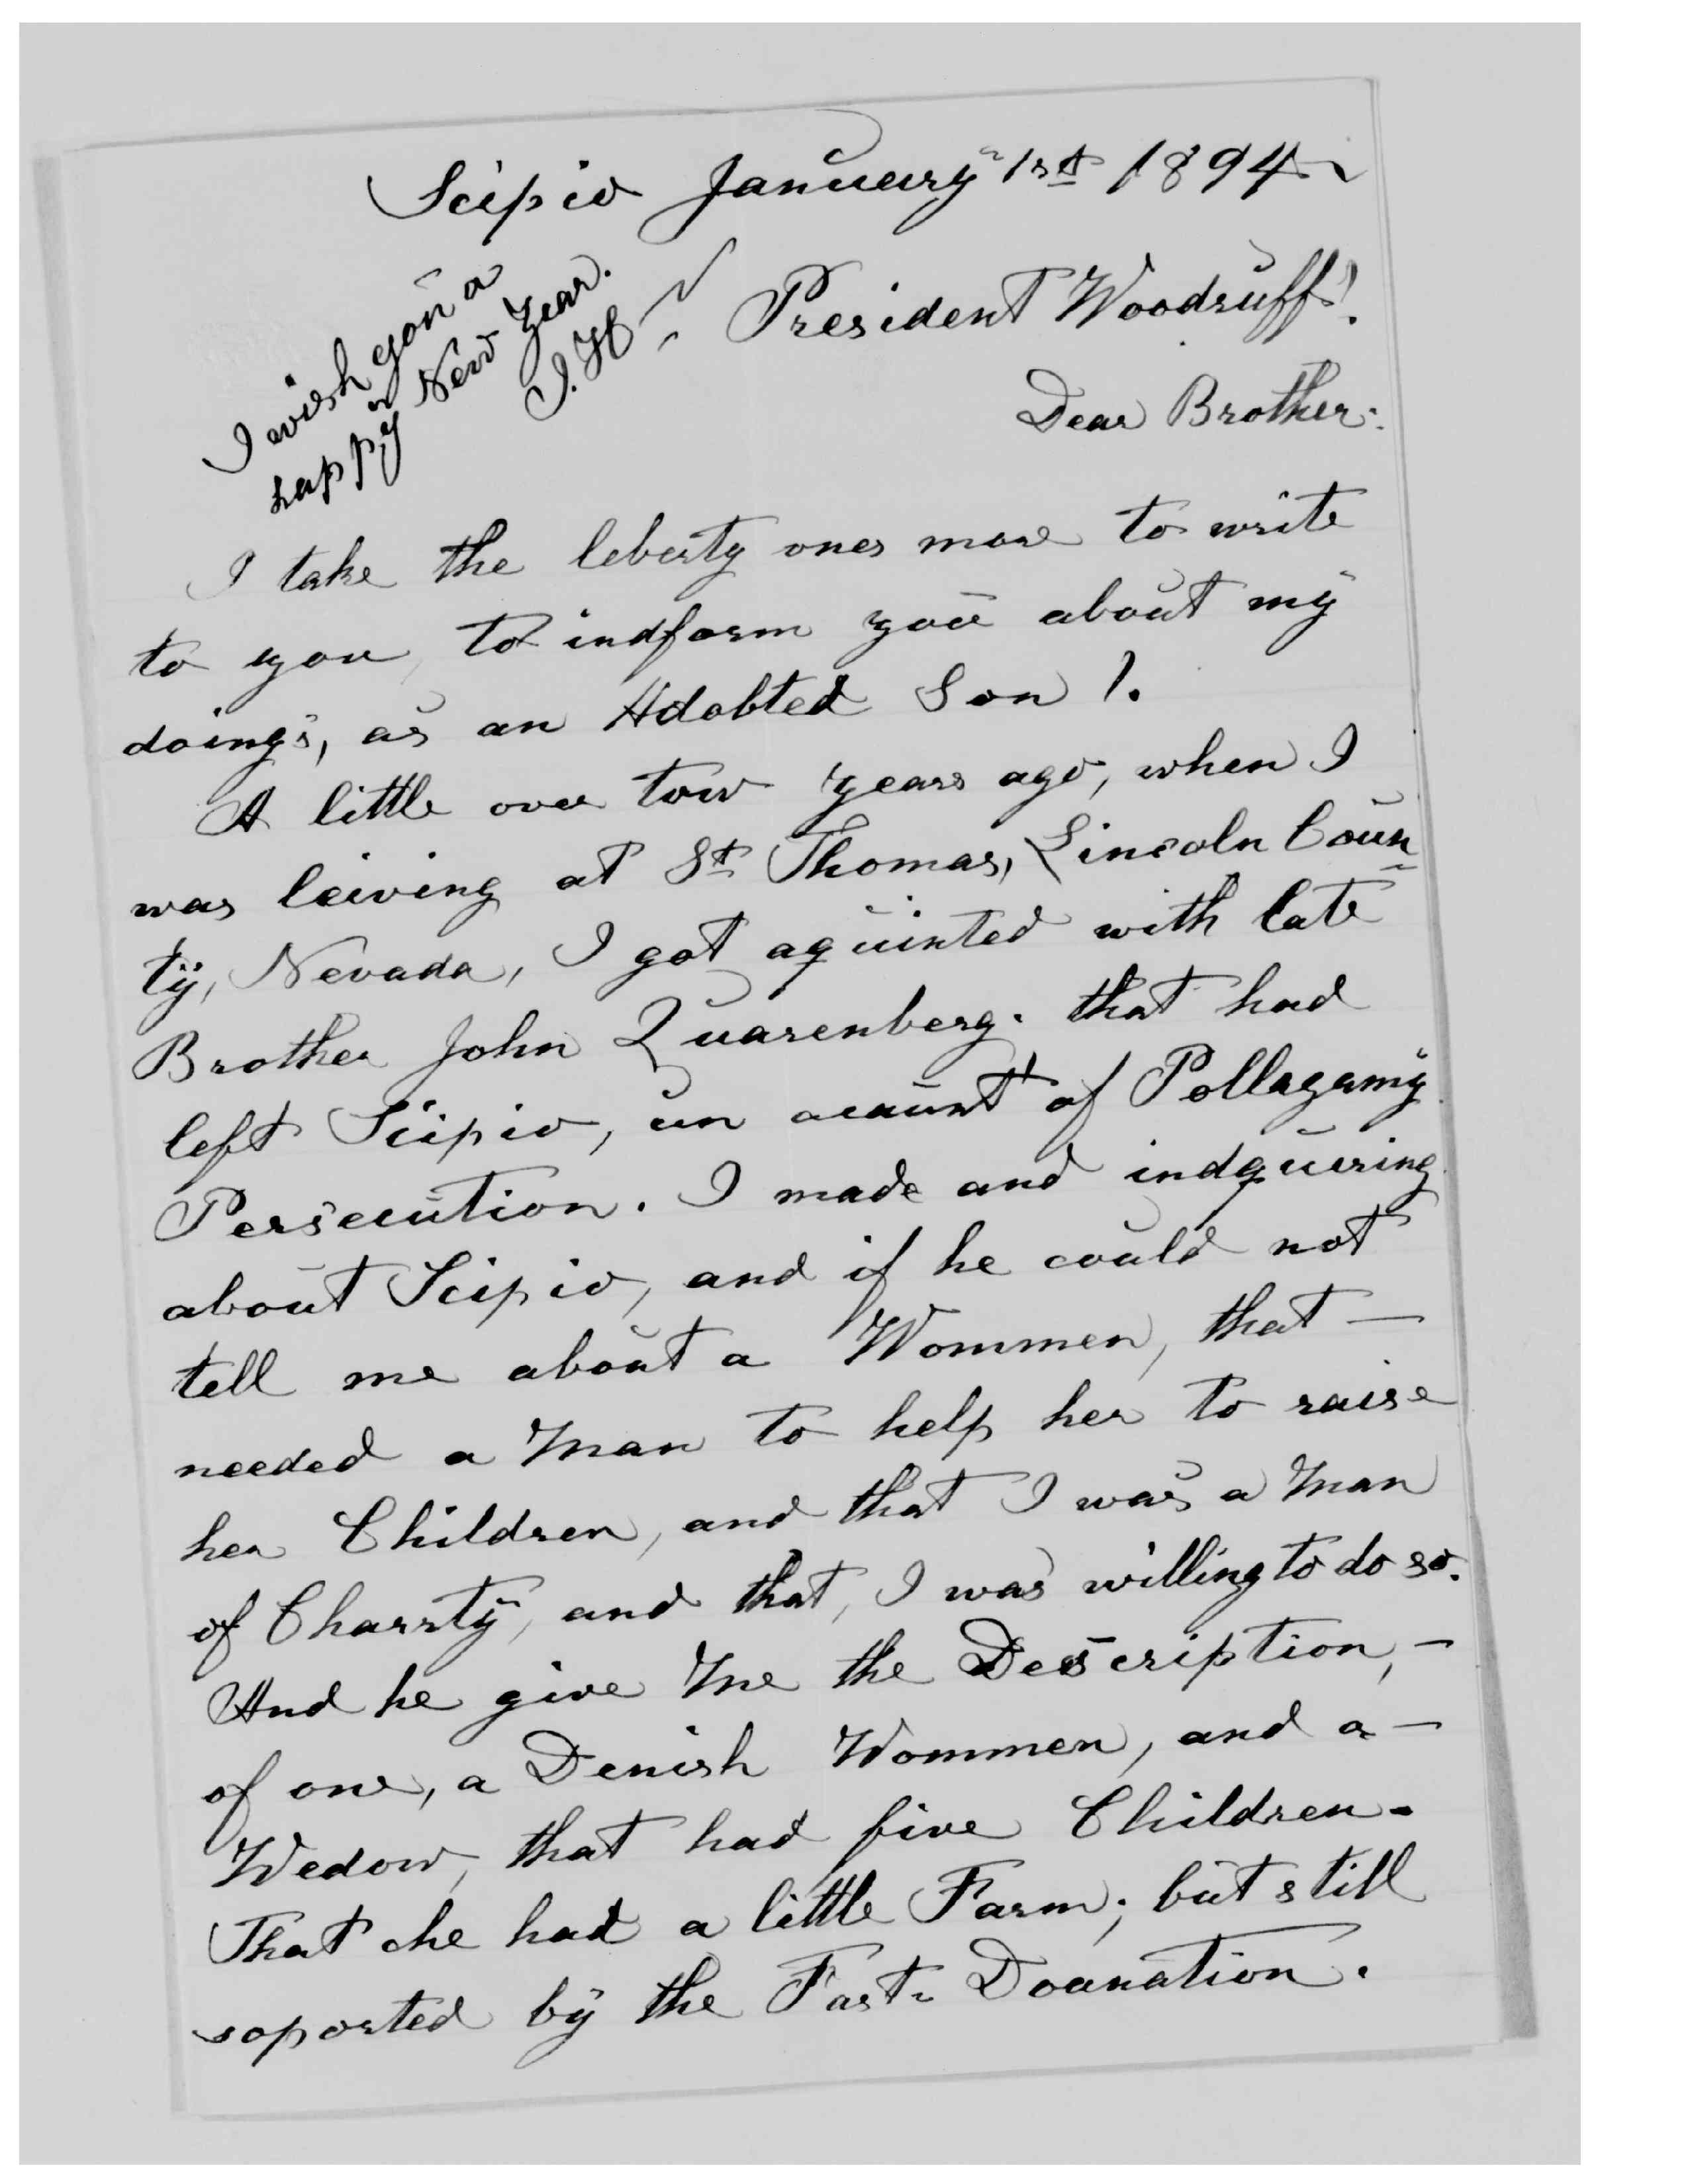 Scipio January 1st 1894
I wish you a
happy New Year.
J. H
President Woodruff!
Dear Brother:
I take the leberty ones more to write
to you, to indform you about my
doings, as an Adobted Son!.
A little over tow years ago, when I
was leiving at St Thomas, Lincoln Coun
ty, Nevada, I got aquinted with late
Brother John Quarenberg. that had
left Scipio, un acount of Pollagamy
Persecution. I made and indquiring
about Scipio, and if he could not
tell me about a Wommen, that —
needed a Man to help her to raise
her Children, and that I was a Man
of Charrty, and that, I was willing to do so.
And he give Me the Description, —
of one, a Denish Wommen, and a —
Wedow, that had five Children.
That che had a little Farm; but still
soported by the Fast- Doanation.